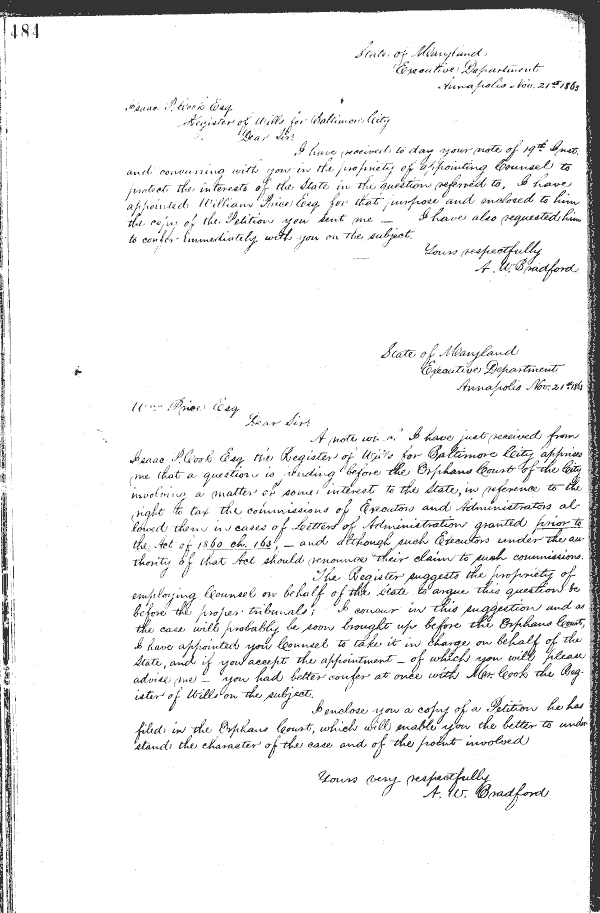 484
State of Maryland
Executive Department
Annapolis Nov. 21st 1863
Isaac P. Cook Esq
Register of Wills for Baltimore City
Dear Sir:
I have received to day your note of 19th Inst.
and concurring with you in the propriety of appointing Counsel to
protect the interests of the State in the question referred to, I have
appointed William Price Esq for that purpose and enclosed to him
the copy of the Petition you sent me — I have also requested him
to confer immediately with you on the subject.
Yours respectfully
A. W. Bradford
State of Maryland
Executive Department
Annapolis Nov. 21st 1863
Wm Price Esq
Dear Sir:
A note which I have just received from
Isaac P. Cook Esq the Register of Wills for Baltimore City apprises
me that a question is pending before the Orphans Court of the City
involving a matter of some interest to the State, in reference to the
right to tax the commissions of Executors and Administrators al-
lowed them in cases of Letters of Administration granted prior to
the Act of 1860 ch. 163, — and although such Executors under the au-
thority of that Act should renounce their claim to such commissions.
The Register suggests the propriety of
employing Counsel on behalf of the State to argue this question be
before the proper tribunals; I concur in this suggestion and as
the case will probably be soon brought up before the Orphans Court,
I have appointed you Counsel to take it in charge on behalf of the
State, and if you accept the appointment — of which you will please
advise me — you had better confer at once with Mr. Cook the Reg-
ister of Wills on the subject.
I enclose you a copy of a Petition he has
filed in the Orphans Court, which will enable you the better to under
stand the character of the case and of the points involved
Yours very respectfully
A. W. Bradford